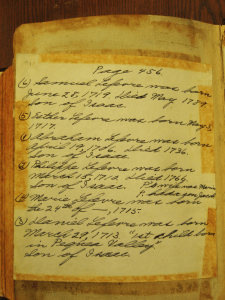 Page 456
(6) Samuel Lefevre was born
June 28, 1719. Died May 1789.
Son of Isaac
(5) Esther Lefevre was born May 3,
1717.
Abraham Lefevre was born
April 1706. Died 1736.
Son of Isaac
Philip Lefevre was born
March 16, 1710. Died 1766.
Son of Isaac
(4) Marie Lefevre was born
the 24th of 1715.
(3) Daniel Lefevre was born
March 29, 1713. "1st child born
in Pequea Valley"
Son of Isaac.